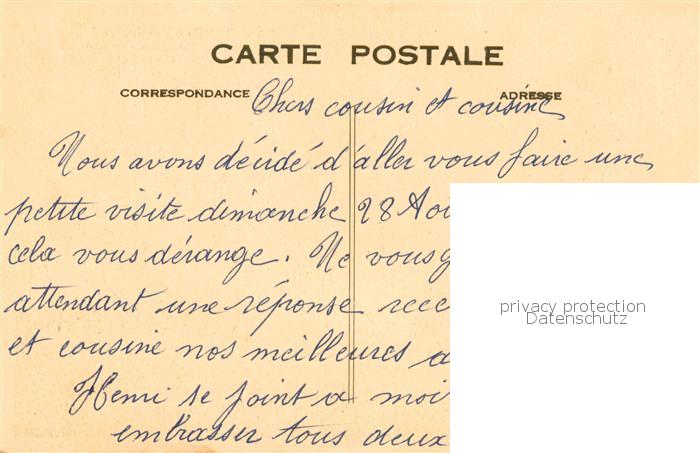 CARTE POSTALE
CORRESPONDANCE ADRESSE
Chers cousin et cousine
Nous avons décidé d'aller vous faire une
petite visite dimanche 28 Aou
cela vous dérange. Ne vous g
attendant une réponse rece
et cousine nos meilleures a
Henri se joint a moi
embrasser tous deux
privacy protection
Datenschutz